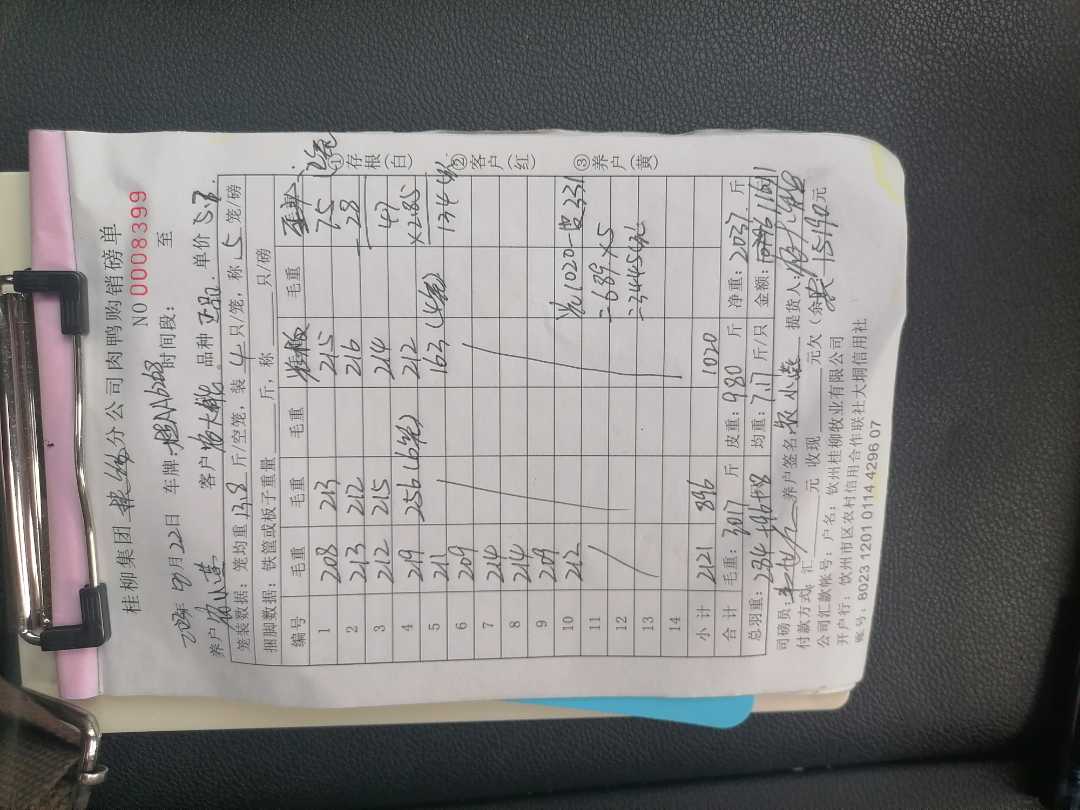 桂柳集团 分公司肉鸭购销磅单
NO 0008399
22日 车牌: 时间段: 至
养户 客户 品种 正品 单价 5.3
笼装数据: 笼均重 13.8 斤/空笼, 装 4 只/笼, 称 5 笼/磅
捆脚数据: 铁筐或板子重量 斤, 称 只/磅
编号 毛重 毛重 毛重 毛重
1 208 213 215 75
2 213 212 216 -28
3 212 215 214 47
4 219 256 (6笼) 212 ×2.85
5 211 163 (4笼) 134
6 209
7 214
8 214
9 209
10 212 1020-皮331
11 =689×5
12 =3445
13
14
小计 2121 896 1020
合计 毛重: 3017 斤 皮重: 980 斤 净重: 2037 斤
总羽重: 284 均重: 7.17 斤/只 金额:
司磅员: 养户签名: 提货人:
付款方式: 汇 元 收现 元欠(余 15190元
公司汇款帐号: 户名: 钦州桂柳牧业有限公司
开户行: 钦州市区农村信用合作联社大垌信用社
账号: 8023 1201 0114 4296 07
①存根(白)
②客户(红)
③养户(黄)